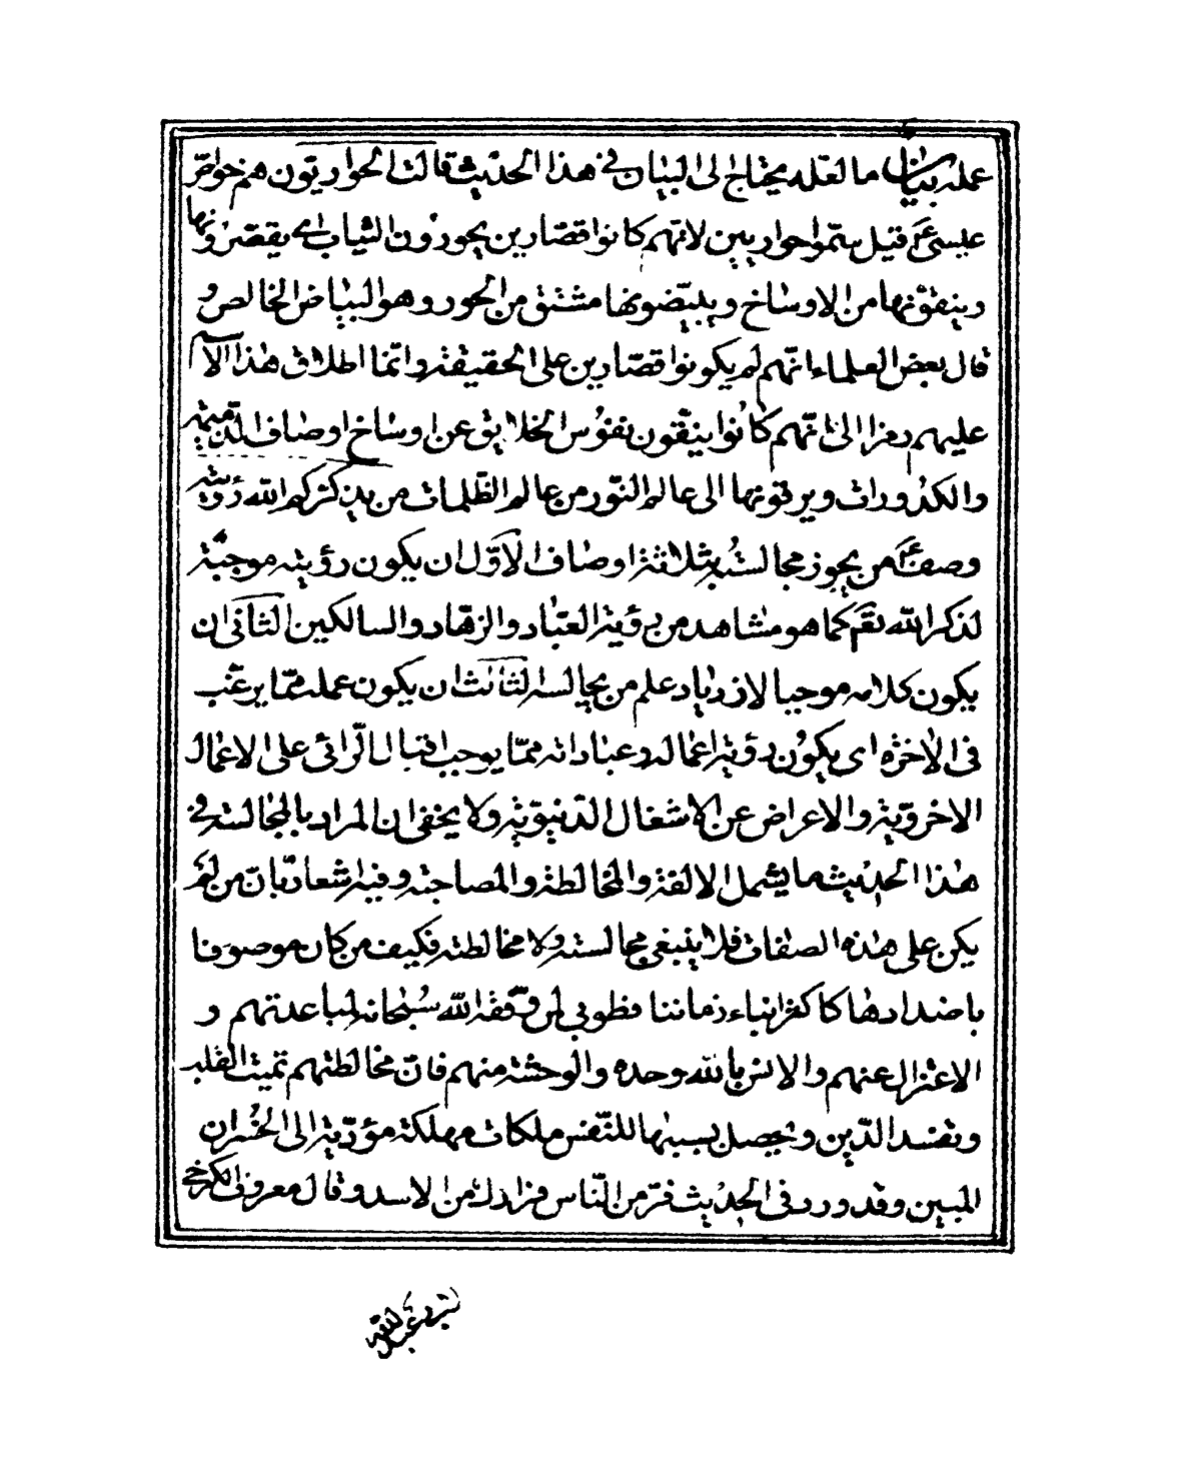 عمله بيان ما لعله يحتاج الى البيان في هذا الحديث قالت الحواريّون هم خواصّ
عيسى ع قيل سمّوا حواريين لانّهم كانوا قصّارين يحورون الثياب اى يقصرونها
وينقونها من الاوساخ ويبيّضونها مشتق من الحور وهو البياض الخالص و
قال بعض العلماء انّهم لم يكونوا قصّارين على الحقيقة وانّما اطلاق هذا الاسم
عليهم رمزا الى انّهم كانوا ينقّون نفوس الخلايق عن اوساخ اوصاف الذّميمة
والكدورات ويرقونها الى عالم النّور من عالم الظّلمات من يذكّركم الله رؤيته
وصف ع من يجوز مجالسته بثلاثة اوصاف الاوّل ان يكون رؤيته موجبة
لذكر الله تعم كما هو مشاهد من رؤية العبّاد والزهّاد والسالكين الثانى ان
يكون كلامه موجبا لازدياد علم من يجالسه الثالث ان يكون عمله ممّا يرغّب
فى الاخرة اى يكون رؤية اعماله وعباداته ممّا يوجب اقبال الرّائى على الاعمال
الاخرويّة والاعراض عن الاشغال الدّنيويّة ولا يخفى ان المراد بالمجالسة فى
هذا الحديث ما يشمل الالفة والمخالطة والمصاحبة وفيه اشعار بان من لم
يكن على هذه الصفات فلا ينبغى مجالسته ولا مخالطته فكيف من كان موصوفا
باضدادها كاكثر ابناء زماننا فطوبى لمن وفّقه الله سبحانه لمباعدتهم و
الاعتزال عنهم والانس بالله وحده والوحشة منهم فانّ مخالطتهم تميت القلب
وتفسد الدّين ويحصل بسببها للنّفس ملكات مهلكة مؤدّية الى الخسران
المبين وقد ورد فى الحديث فرّ من النّاس فرارك من الاسد وقال معروف الكرخى